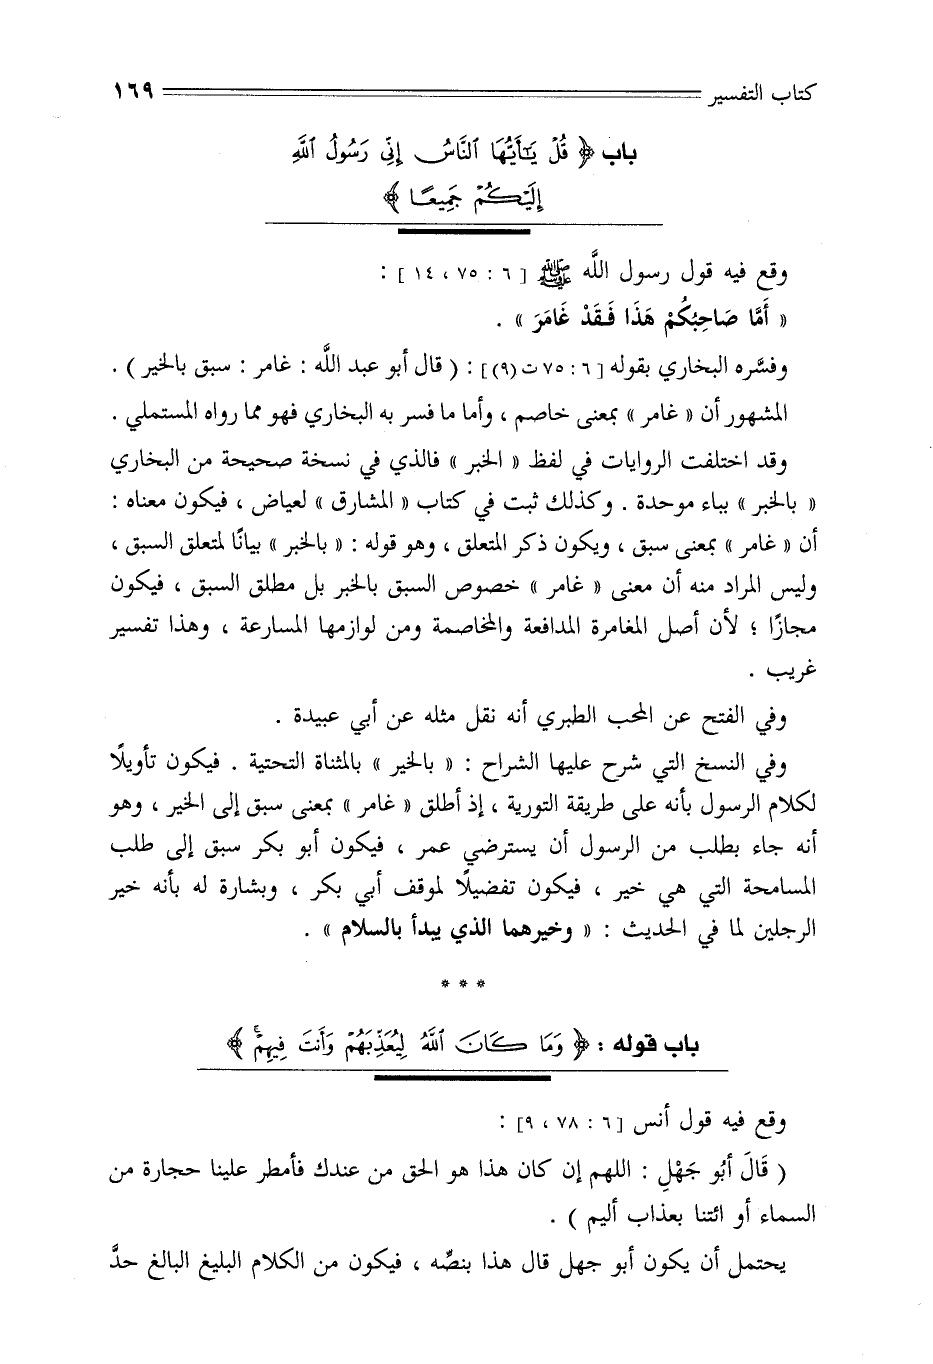 كتاب التفسير ١٦٩
باب ﴿ قُلْ يَٰٓأَيُّهَا ٱلنَّاسُ إِنِّي رَسُولُ ٱللَّهِ
إِلَيْكُمْ جَمِيعًا ﴾
وقع فيه قول رسول اللَّه ﷺ [ ٦ : ٧٥ ، ١٤ ] :
« أَمَّا صَاحِبُكُمْ هَذَا فَقَدْ غَامَرَ » .
وفسَّره البخاري بقوله [ ٦ : ٧٥ ت (٩)] : ( قال أبو عبد اللَّه : غامر : سبق بالخير ) .
المشهور أن « غامر » بمعنى خاصم ، وأما ما فسر به البخاري فهو مما رواه المستملي .
وقد اختلفت الروايات في لفظ « الخبر » فالذي في نسخة صحيحة من البخاري
« بالخبر » بباء موحدة . وكذلك ثبت في كتاب « المشارق » لعياض ، فيكون معناه :
أن « غامر » بمعنى سبق ، ويكون ذكر المتعلق ، وهو قوله : « بالخبر » بيانًا لمتعلق السبق ،
وليس المراد منه أن معنى « غامر » خصوص السبق بالخبر بل مطلق السبق ، فيكون
مجازًا ؛ لأن أصل المغامرة المدافعة والمخاصمة ومن لوازمها المسارعة ، وهذا تفسير
غريب .
وفي الفتح عن المحب الطبري أنه نقل مثله عن أبي عبيدة .
وفي النسخ التي شرح عليها الشراح : « بالخير » بالمثناة التحتية . فيكون تأويلًا
لكلام الرسول بأنه على طريقة التورية ، إذ أطلق « غامر » بمعنى سبق إلى الخير ، وهو
أنه جاء بطلب من الرسول أن يسترضي عمر ، فيكون أبو بكر سبق إلى طلب
المسامحة التي هي خير ، فيكون تفضيلًا لموقف أبي بكر ، وبشارة له بأنه خير
الرجلين لما في الحديث : « وخيرهما الذي يبدأ بالسلام » .
* * *
باب قوله : ﴿ وَمَا كَانَ ٱللَّهُ لِيُعَذِّبَهُمْ وَأَنتَ فِيهِمْ ۚ ﴾
وقع فيه قول أنس [ ٦ : ٧٨ ، ٩] :
( قَالَ أَبُو جَهْلٍ : اللهم إن كان هذا هو الحق من عندك فأمطر علينا حجارة من
السماء أو ائتنا بعذاب أليم ) .
يحتمل أن يكون أبو جهل قال هذا بنصِّه ، فيكون من الكلام البليغ البالغ حدَّ